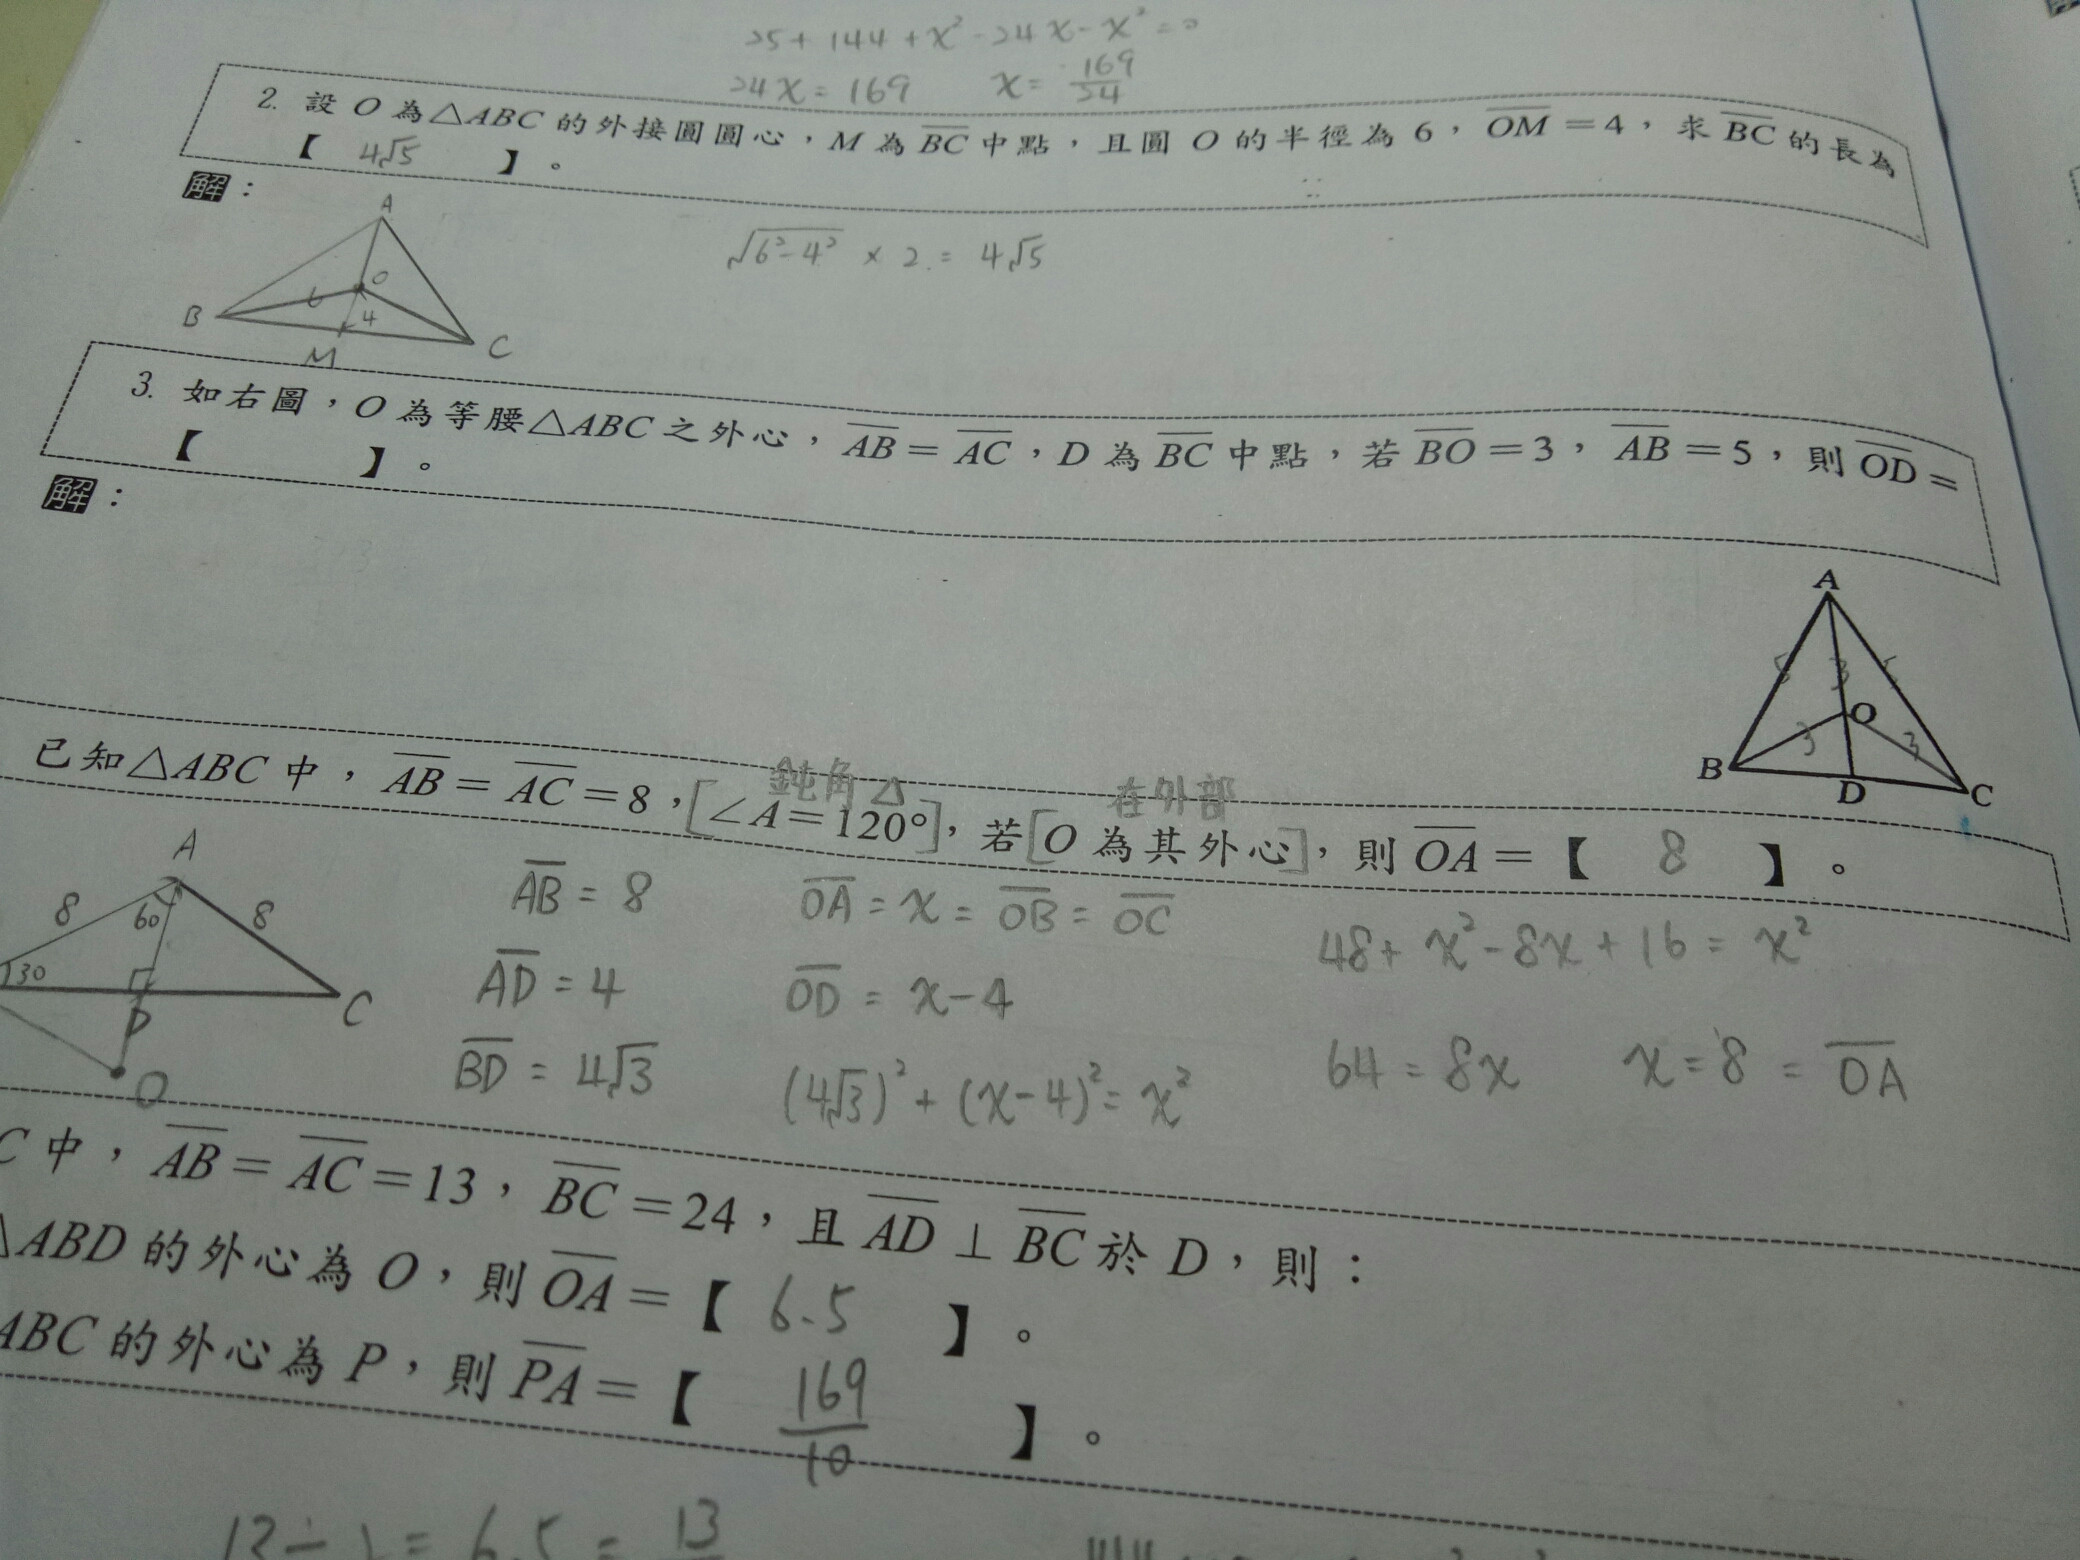 25+144+x²-24x-x²=0
24x=169 x=169/24
2. 設 O 為△ABC 的外接圓圓心，M 為 BC 中點，且圓 O 的半徑為 6，OM=4，求 BC 的長為
【 4√5 】。
解：
A
√6²-4² × 2 = 4√5
O
6
B
4
C
M
3. 如右圖，O 為等腰△ABC 之外心，AB=AC，D 為 BC 中點，若 BO=3，AB=5，則 OD=
【 】。
解：
A
5 3 5
O
3 3
B
D
C
鈍角△ 在外部
已知△ABC 中，AB=AC=8，[∠A=120°]，若[O 為其外心]，則 OA=【 8 】。
A
8 60 8
30
D
C
O
AB=8 OA=x=OB=OC 48+x²-8x+16=x²
AD=4 OD=x-4
BD=4√3 (4√3)²+(x-4)²=x² 64=8x x=8=OA
C 中，AB=AC=13，BC=24，且 AD⊥BC 於 D，則：
△ABD 的外心為 O，則 OA=【 6.5 】。
ABC 的外心為 P，則 PA=【 169/10 】。
13÷2=6.5=13